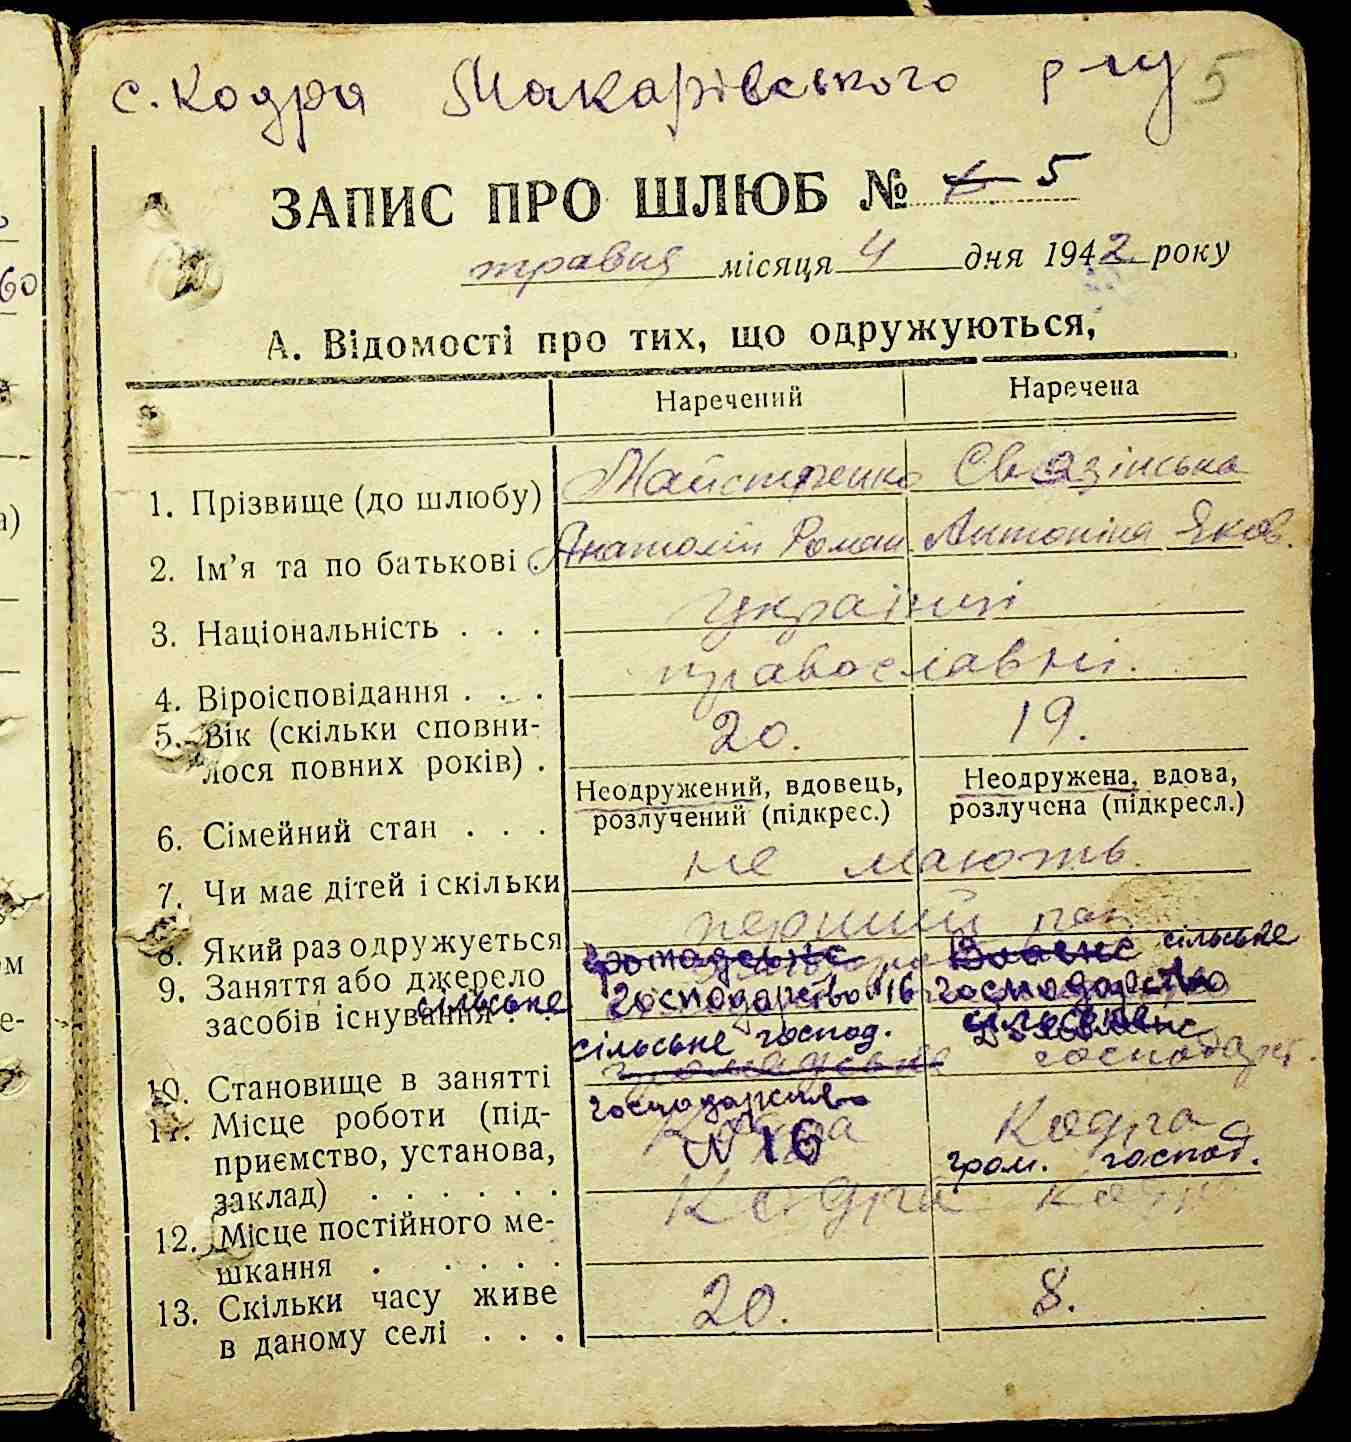 с. Кодра Макарівського р-ну 5
ЗАПИС ПРО ШЛЮБ № 5
травня місяця 4 дня 1942 року
А. Відомості про тих, що одружуються,
Наречений Наречена
1. Прізвище (до шлюбу) Майстренко Свазінська
2. Ім'я та по батькові . Анатолій Роман. Антоніна Яков.
3. Національність . . . українці
4. Віроісповідання . . . православні.
5. Вік (скільки сповни-
лося повних років) . 20. 19.
Неодружений, вдовець, Неодружена, вдова,
6. Сімейний стан . . . розлучений (підкрес.) розлучена (підкресл.)
7. Чи має дітей і скільки не мають.
8. Який раз одружується перший раз
9. Заняття або джерело громадське власне сільське
засобів існування . . сільське господарство 16 господарство
сільське господ.
10. Становище в занятті громадське господарст.
11. Місце роботи (під- господарство
приємство, установа, Кодра № 16 Кодра
заклад) . . . . . . гром. господ.
12. Місце постійного ме- Кодра Кодра
шкання . . . . . .
13. Скільки часу живе
в даному селі . . . 20. 8.
60
а)
ом
е-